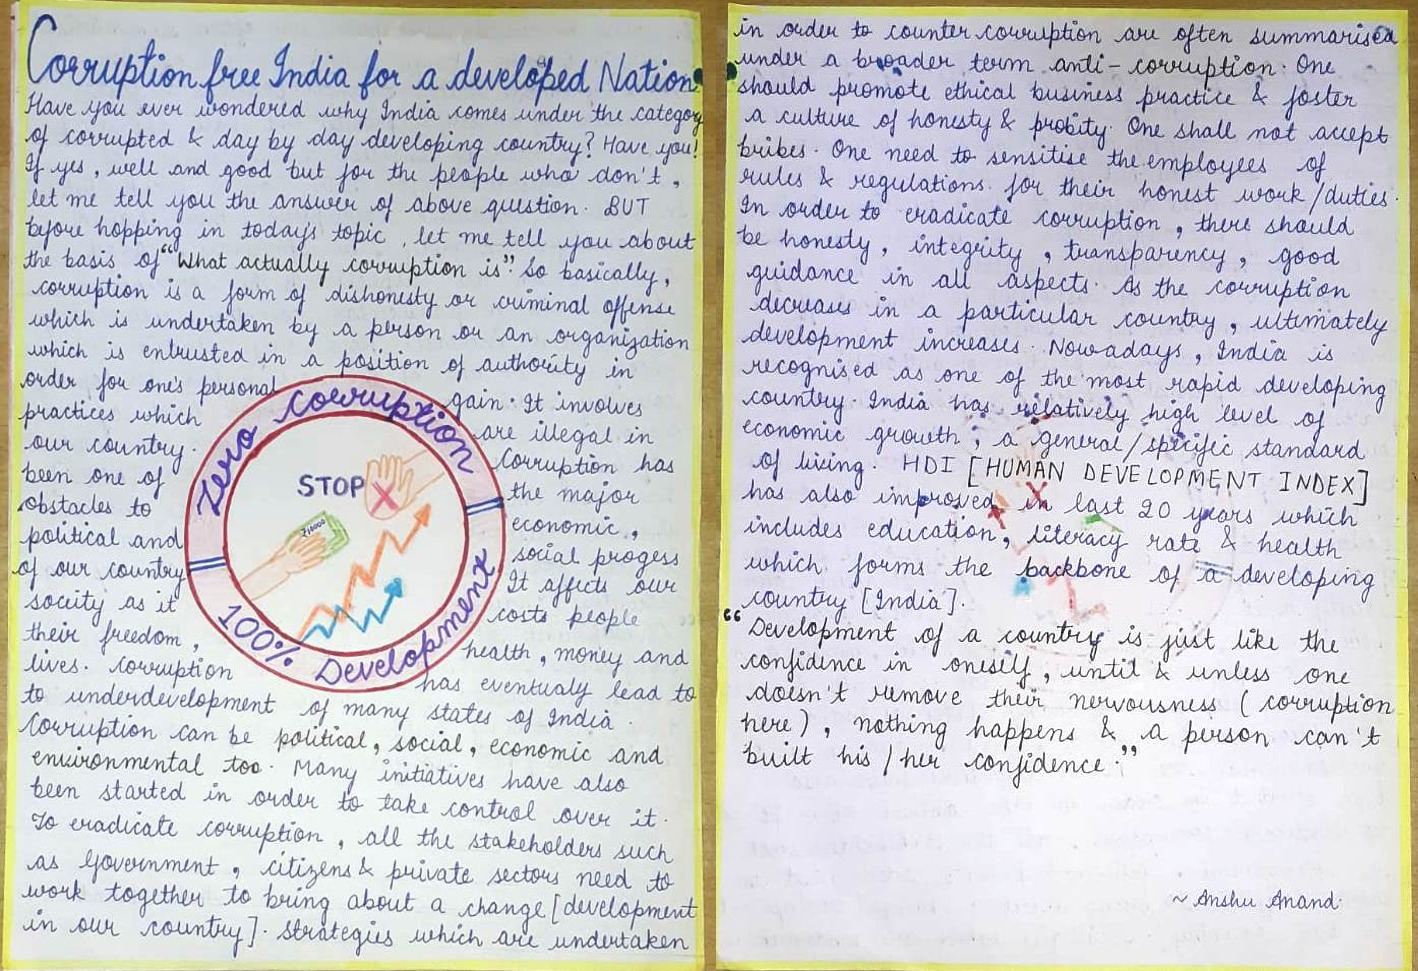 Corruption free India for a developed Nation
Have you ever wondered why India comes under the category
of corrupted & day by day developing country? Have you!
If yes, well and good but for the people who don't,
let me tell you the answer of above question. BUT
before hopping in today's topic, let me tell you about
the basis of "What actually corruption is". So basically,
corruption is a form of dishonesty or criminal offense
which is undertaken by a person or an organization
which is entrusted in a position of authority in
order for one's personal gain. It involves
practices which are illegal in
our country. Corruption has
been one of the major
obstacles to economic,
political and social progess
of our country It affects our
socity as it costs people
their freedom, health, money and
lives. Corruption has eventualy lead to
to underdevelopment of many states of India.
Corruption can be political, social, economic and
environmental too. Many initiatives have also
been started in order to take control over it.
To eradicate corruption, all the stakeholders such
as Government, citizens & private sectors need to
work together to bring about a change [development
in our country]. Strategies which are undertaken
Zero Corruption
STOP
₹10000
100% Development
in order to counter corruption are often summarised
under a broader term anti-corruption. One
should promote ethical business practice & foster
a culture of honesty & probity. One shall not accept
bribes. One need to sensitise the employees of
rules & regulations for their honest work/duties.
In order to eradicate corruption, there should
be honesty, integrity, transparency, good
guidance in all aspects. As the corruption
decreases in a particular country, ultimately
development increases. Nowadays, India is
recognised as one of the most rapid developing
country. India has relatively high level of
economic growth, a general/specific standard
of living. HDI [HUMAN DEVELOPMENT INDEX]
has also improved in last 20 years which
includes education, literacy rate & health
which forms the backbone of a developing
country [India].
"Development of a country is just like the
confidence in oneself, until & unless one
doesn't remove their nervousness (corruption
here), nothing happens & a person can't
built his/her confidence."
~ Anshu Anand.